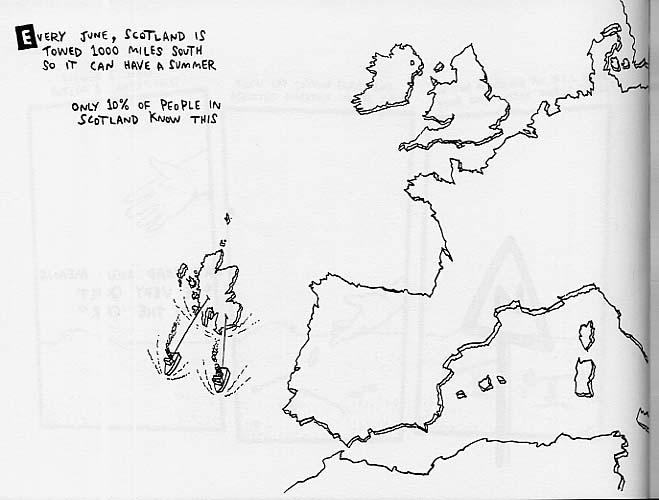 EVERY JUNE, SCOTLAND IS
TOWED 1000 MILES SOUTH
SO IT CAN HAVE A SUMMER
ONLY 10% OF PEOPLE IN
SCOTLAND KNOW THIS